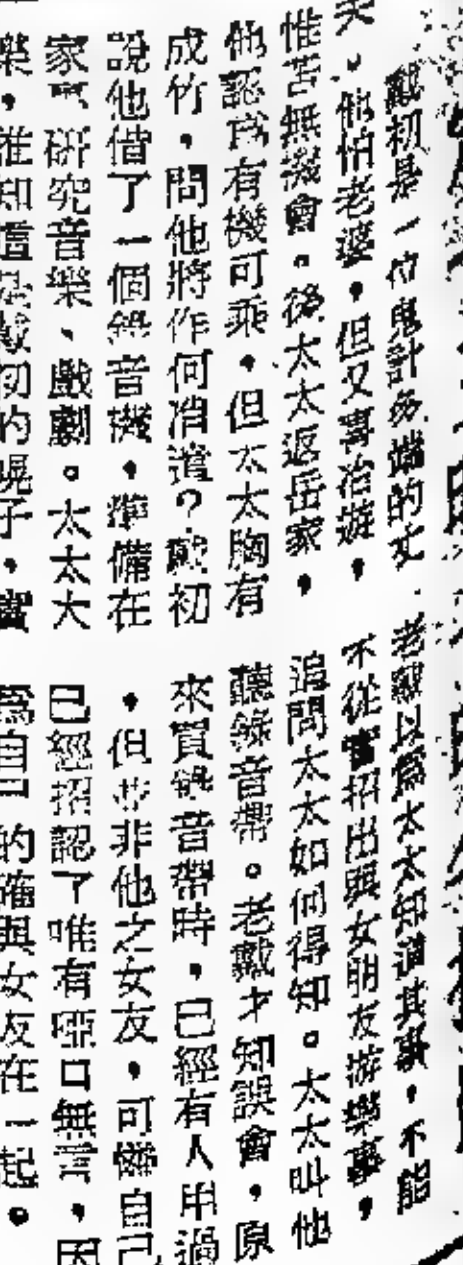 戴初是一位鬼計多端的丈
夫。他怕老婆,但又喜冶遊,
惟苦無機會。後太太返岳家,
他認爲有機可乘。但太太胸有
成竹,問他將作何消遣?戴初
說他借了一個錄音機,準備在
家研究音樂、戲劇。太太大
樂,誰知這是戴初的幌子,實
老戴以爲太太知道其事,不能
不從實招出與女朋友游樂事,
追問太太如何得知。太太叫他
聽錄音帶。老戴才知誤會,原
來買錄音帶時,已經有人用過
,但並非他之女友,可憐自己
已經招認了唯有啞口無言,因
爲自己的確與女友在一起。